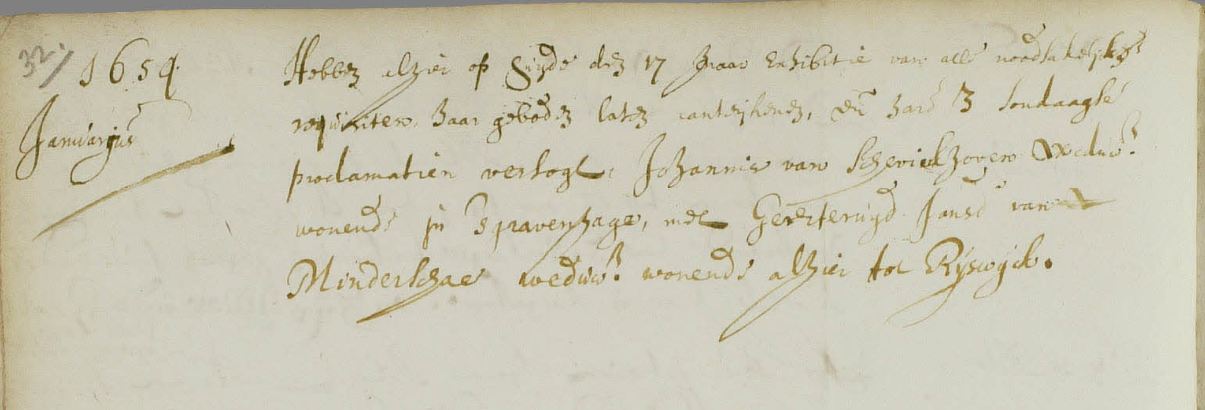 32
1654
Januarius
Hebben alhier op huyde den 17 Naar Exhibitie van alle noodsakelijke
requisiten, haar geboden laten aanteijkenen, en haar 3 sondaagse
proclamatien versogt, Johannis van Schrevichoven Weduwr
wonende in 's Gravenhage, met Geertruyd Jansd van
Minderhae weduwe wonende alhier tot Ryswijck.